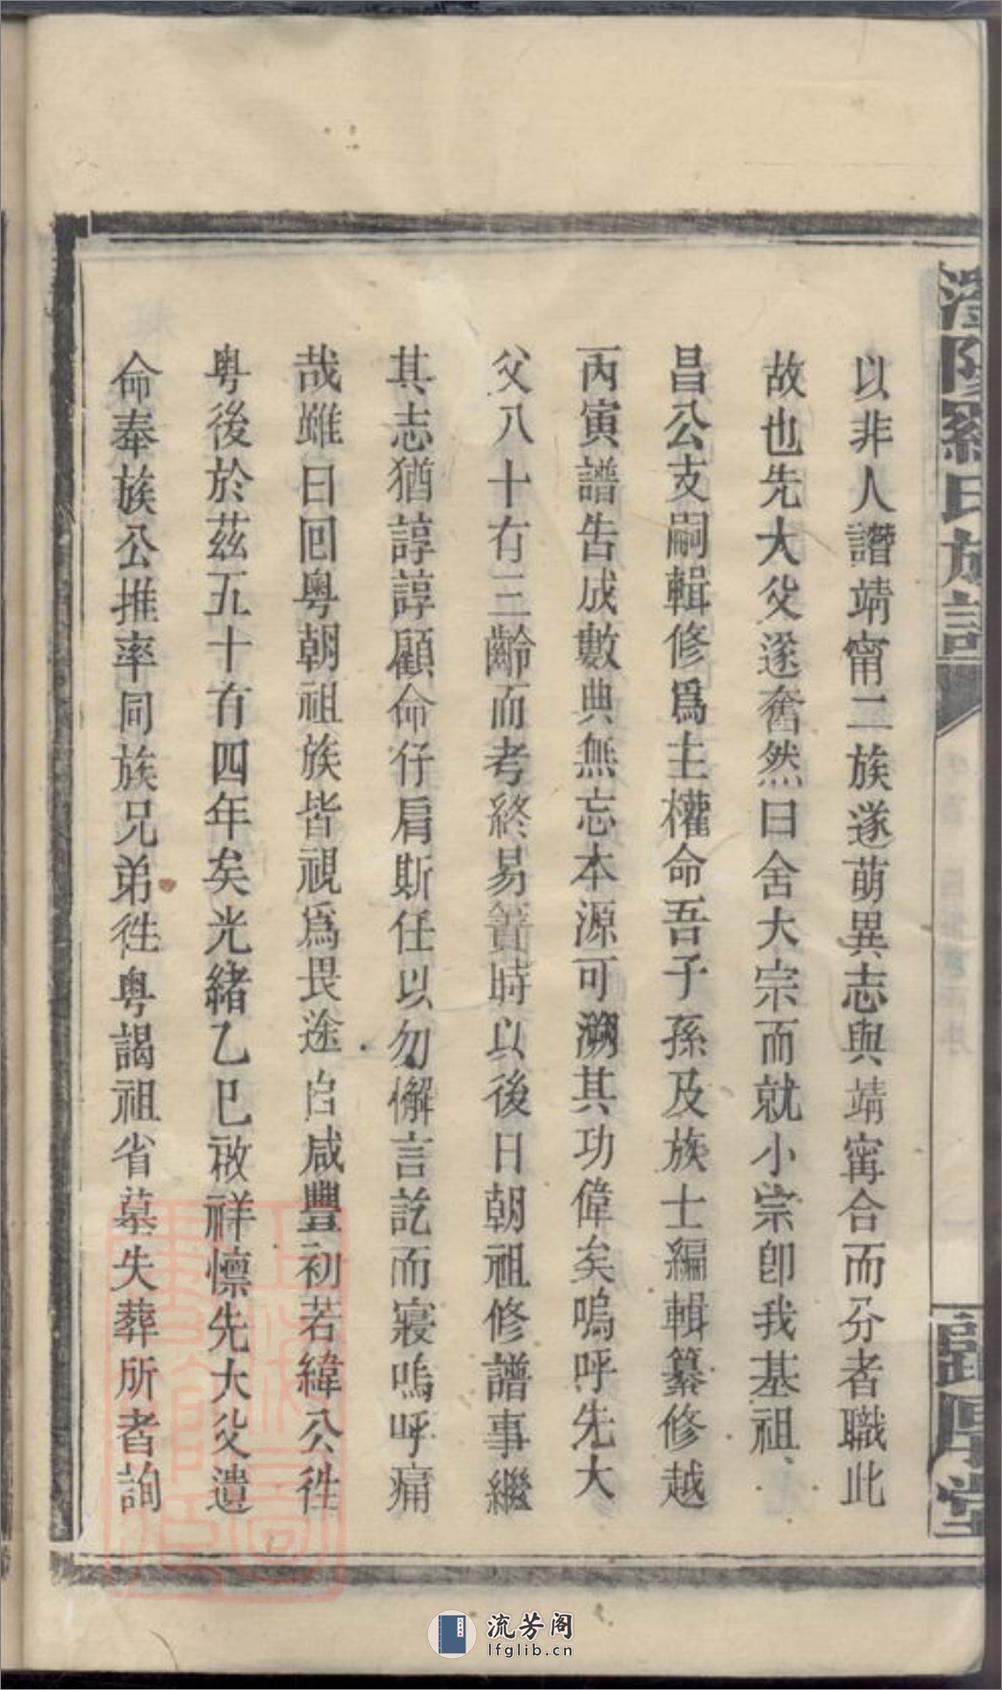 以非人譖靖甯二族遂萌異志與靖甯合而分者職此
故也先大父遂奮然曰舍大宗而就小宗卽我基祖
昌公支嗣輯修爲主權命吾子孫及族士編輯纂修越
丙寅譜告成數典無忘本源可溯其功偉矣嗚呼先大
父八十有三齡而考終易簀時以後日朝祖修譜事繼
其志猶諄諄顧命仔肩斯任以勿懈言訖而寢嗚呼痛
哉雖曰回粤朝祖族皆視爲畏途自咸豐初若緯公徃
粤後於茲五十有四年矣光緒乙巳啟祥懔先大父遺
命奉族公推率同族兄弟徃粤謁祖省墓失葬所者詢
羅氏族譜
堂
流芳阁
lfglib.cn